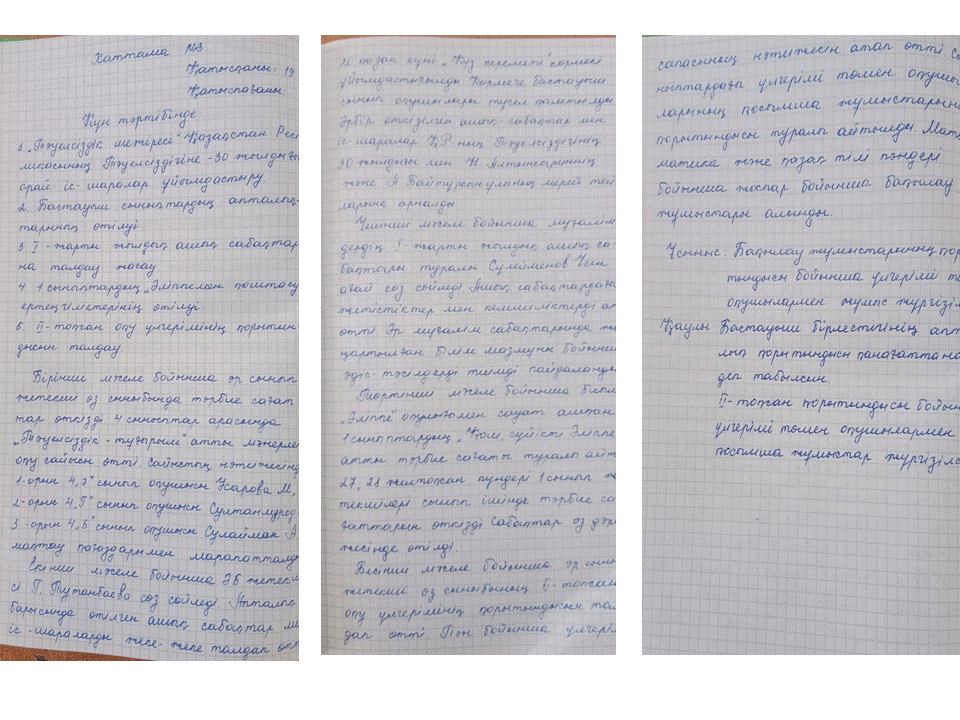 Хаттама №3
Қатысқаны: 19
Қатыспағаны:
Күн тәртібінде:
1. „Тәуелсіздік мәтіресі" Қазақстан Респ
ликасының Тәуелсіздігіне -30 жылдығы
орай іс-шаралар ұйымдастыру
2. Бастауыш сыныптардың апталық-
тарының өтілуі
3 I - жарты жылдық ашық сабақтар
на талдау жасау
4. 1 сыныптардың „Әліппемен қоштасу
ертеңгіліктерінің өтілуі
5. II-тоқсан оқу үлгерімінің қорытын-
дысын талдау
Бірінші мәселе бойынша әр сынып
жетекші өз сыныбында тәрбие сағат
тар өткізді 4 сыныптар арасында
„Тәуелсіздік - тұғырым" атты мәнерлеп
оқу сайысы өтті. Сайыстың нәтижесінд
1-орын 4„Ә" сынып оқушысы Усарова М,
2-орын 4„Г" сынып оқушысы Султанмурод
3 -орын 4„Б" сынып оқушысы Сулайман А.
мақтау қағаздарымен марапатталды
Екінші мәселе бойынша ӘБ жетекш
сі Г. Тутанбаева сөз сөйледі. Апталық
барысында өтілген ашық сабақтар ме
іс -шараларды жеке- жеке талдап өтт
20 қазан күні „Күз керемет" көрмесі
ұйымдастырылды Көрмеге бастауыш
сынып оқушылары түгел қамтылды.
Әрбір өткізілген ашық- сабақтар мен
іс-шаралар ҚР ның Тәуелсіздігінің
30 жылдығы мен Ы Алтынсариннің
және А Байтұрсынұлының мерей той
ларына арналды
Үшінші мәселе бойынша мұғалім
дердің I- жарты жылдық ашық са-
бақтары туралы Сулайменов Үсен
ағай сөз сөйледі Ашық сабақтардағы
жетістіктер мен кемшіліктерді ай
өтті Әр мұғалім сабақтарында жа
ңартылған білім мазмұны бойынш
әдіс-тәсілдерді тиімді пайдаланды
Төртінші мәселе бойынша білім
Әліппе" оқулығымен сауат ашқан
1 сыныптардың „Қош, сүйікті Әліппе
атты тәрбие сағаты туралы айт
27, 28 желтоқсан күндері 1 сынып же
текшілері сынып ішінде тәрбие са
ғаттарын өткізді Сабақтар өз дәре
жесінде өтілді.
Бесінші мәселе бойынша әр сынып
жетекші өз сыныбының II-тоқсан
оқу үлгерімінің қорытындысын тал
дап өтті. Пән бойынша үлгерім
сапасының нәтижесін атап өтті. Сы
ныптардағы үлгерімі төмен оқушы
ларының қосымша жұмыстарының
қорытындысы туралы айтылды. Мате
матика және қазақ тілі пәндері
бойынша жоспар бойынша бақылау
жұмыстары алынды.
Ұсыныс: Бақылау жұмыстарының қор
тындысы бойынша үлгерімі тө
оқушылармен жұмыс жүргізіл
Қаулы Бастауыш бірлестігінің апт
лық қорытындысы қанағаттана
деп табылсын.
II-тоқсан қорытындысы бойын
үлгерімі төмен оқушылармен
қосымша жұмыстар жүргізілс